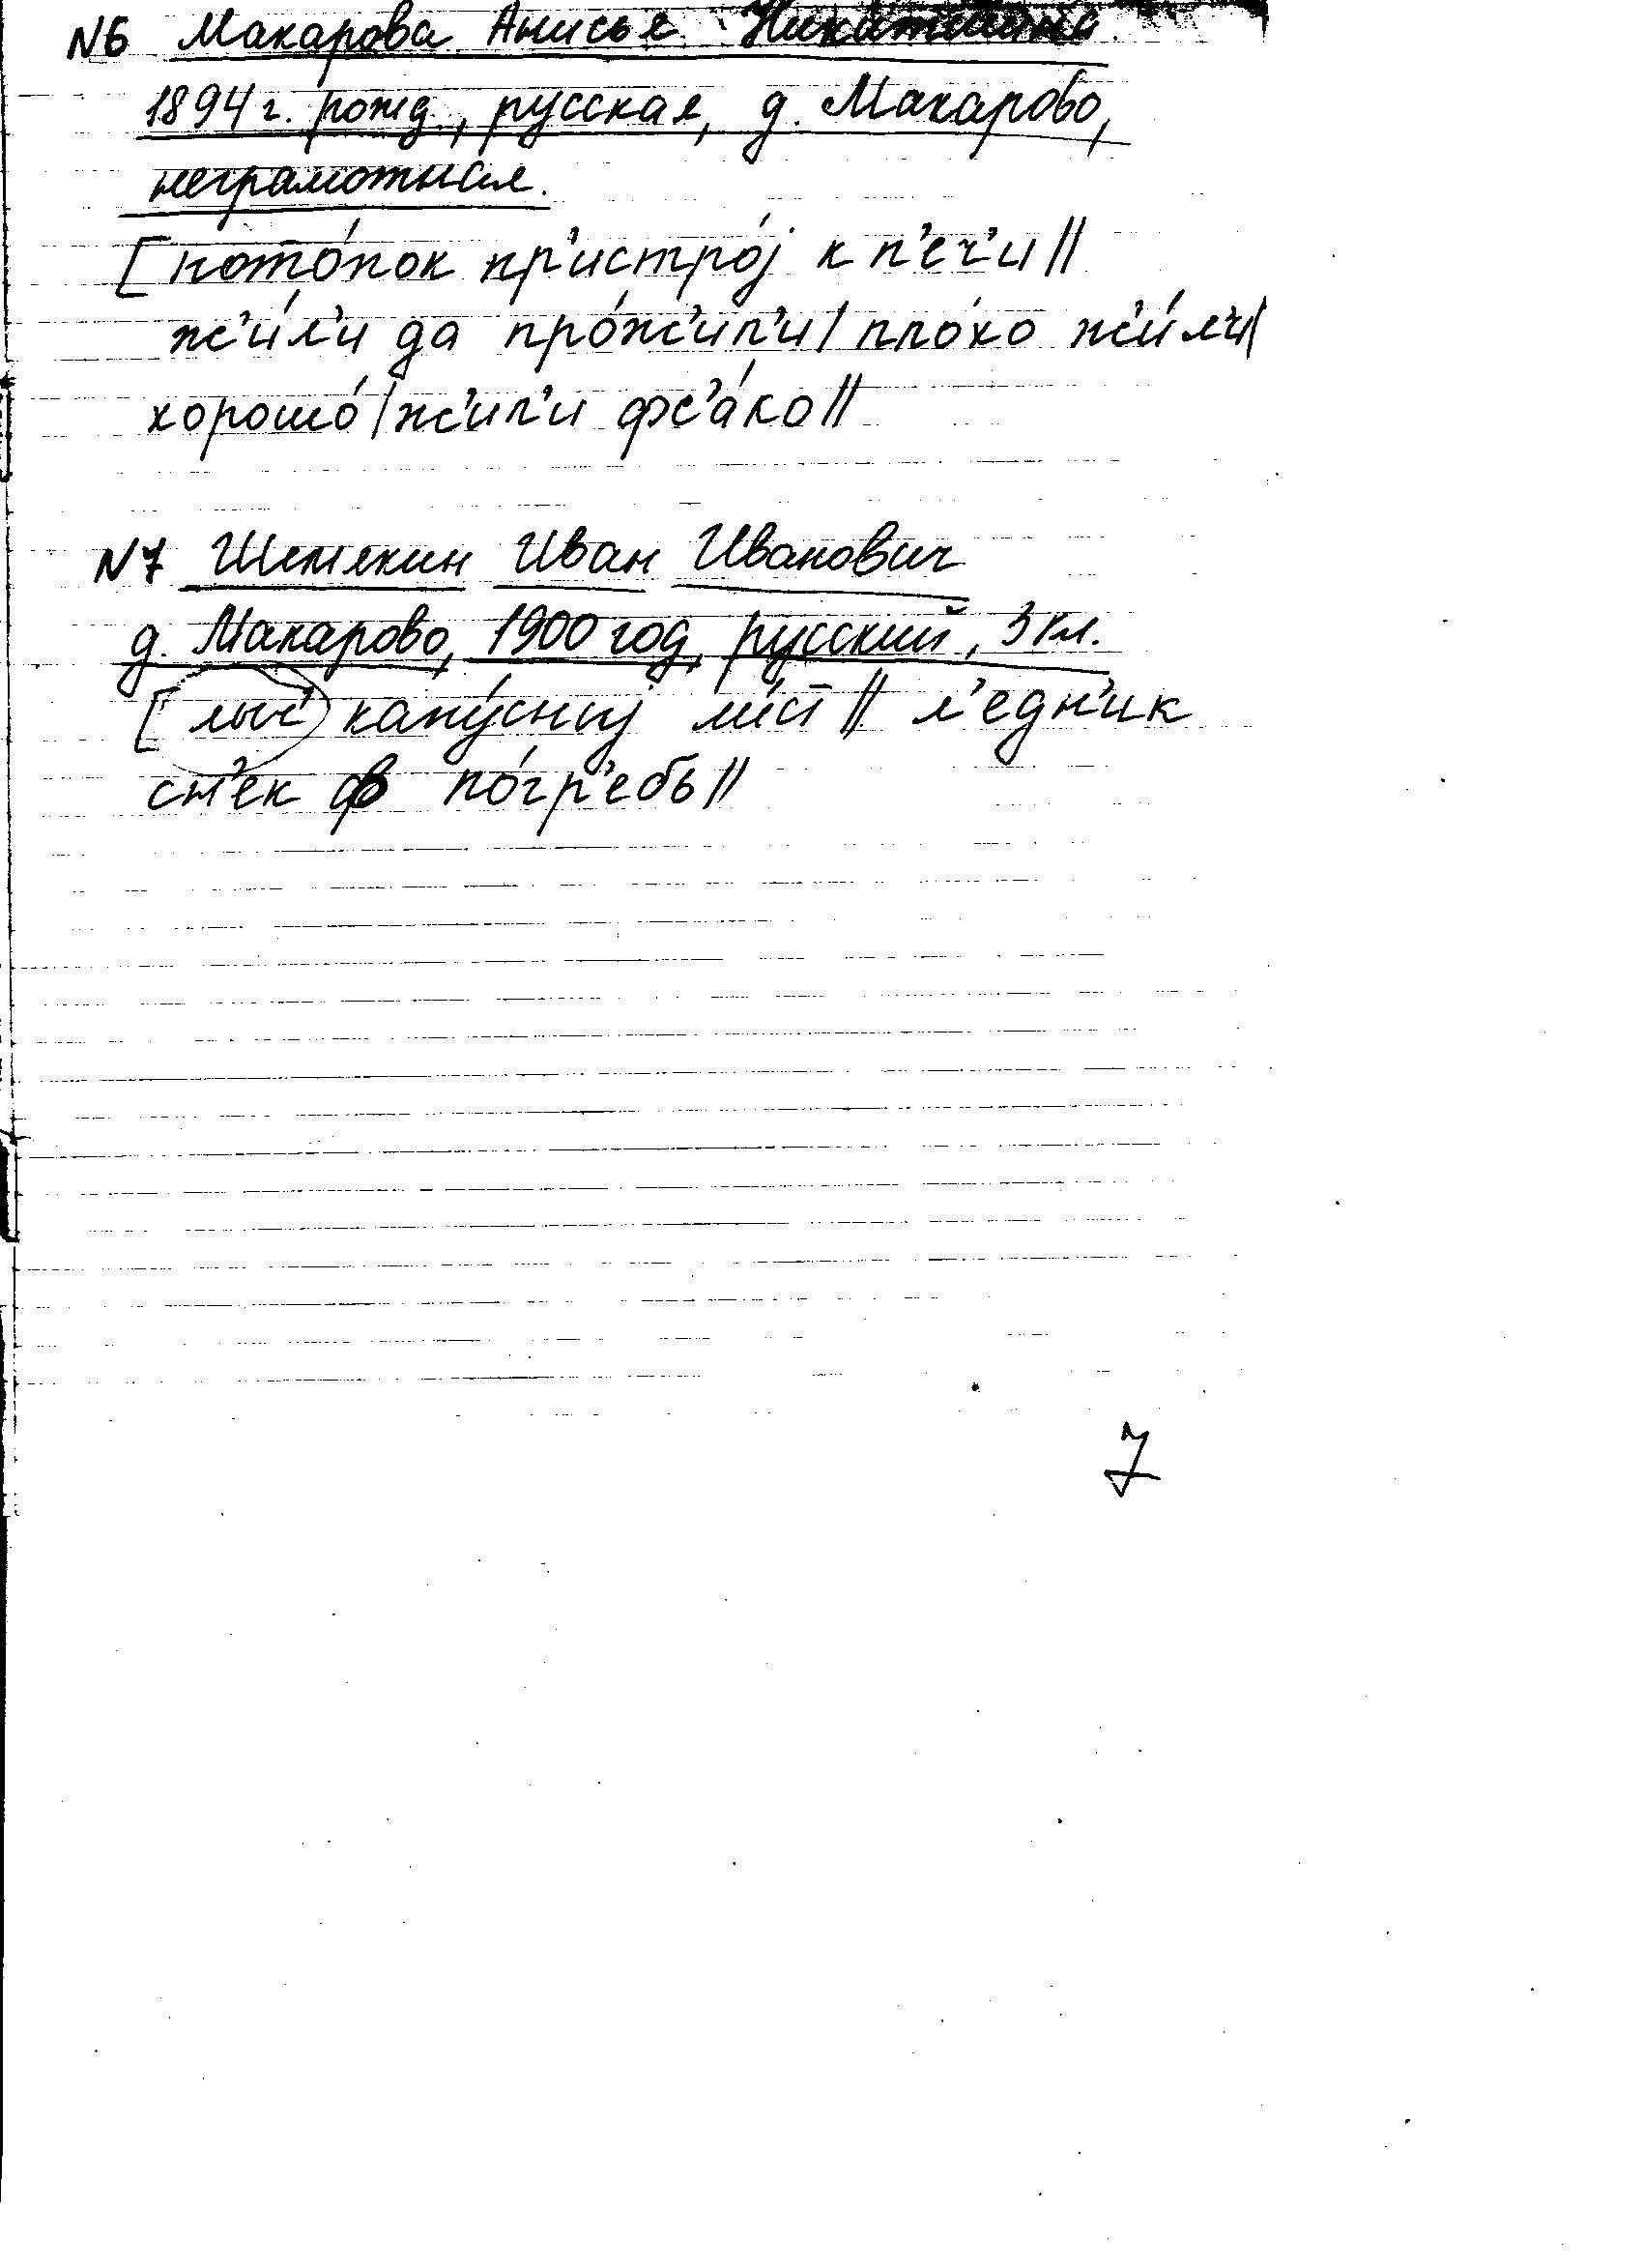 N6 Макарова Анисья
1894 г. рожд., русская, д. Макарово,
неграмотная.
[пото́лок пр'истро́ј к п'еч'и ||
ж'и́л'и да про́ж'ил'и / пло́хо ж'и́л'и /
хорошо́ / ж'ил'и фс'а́ко ||
N7 Шемякин Иван Иванович
д. Макарово, 1900 год, русский, 3 кл.
[ капу́сниј ли́ст || л'едн'ик
сн'ек в по́гр'ебь ||
7